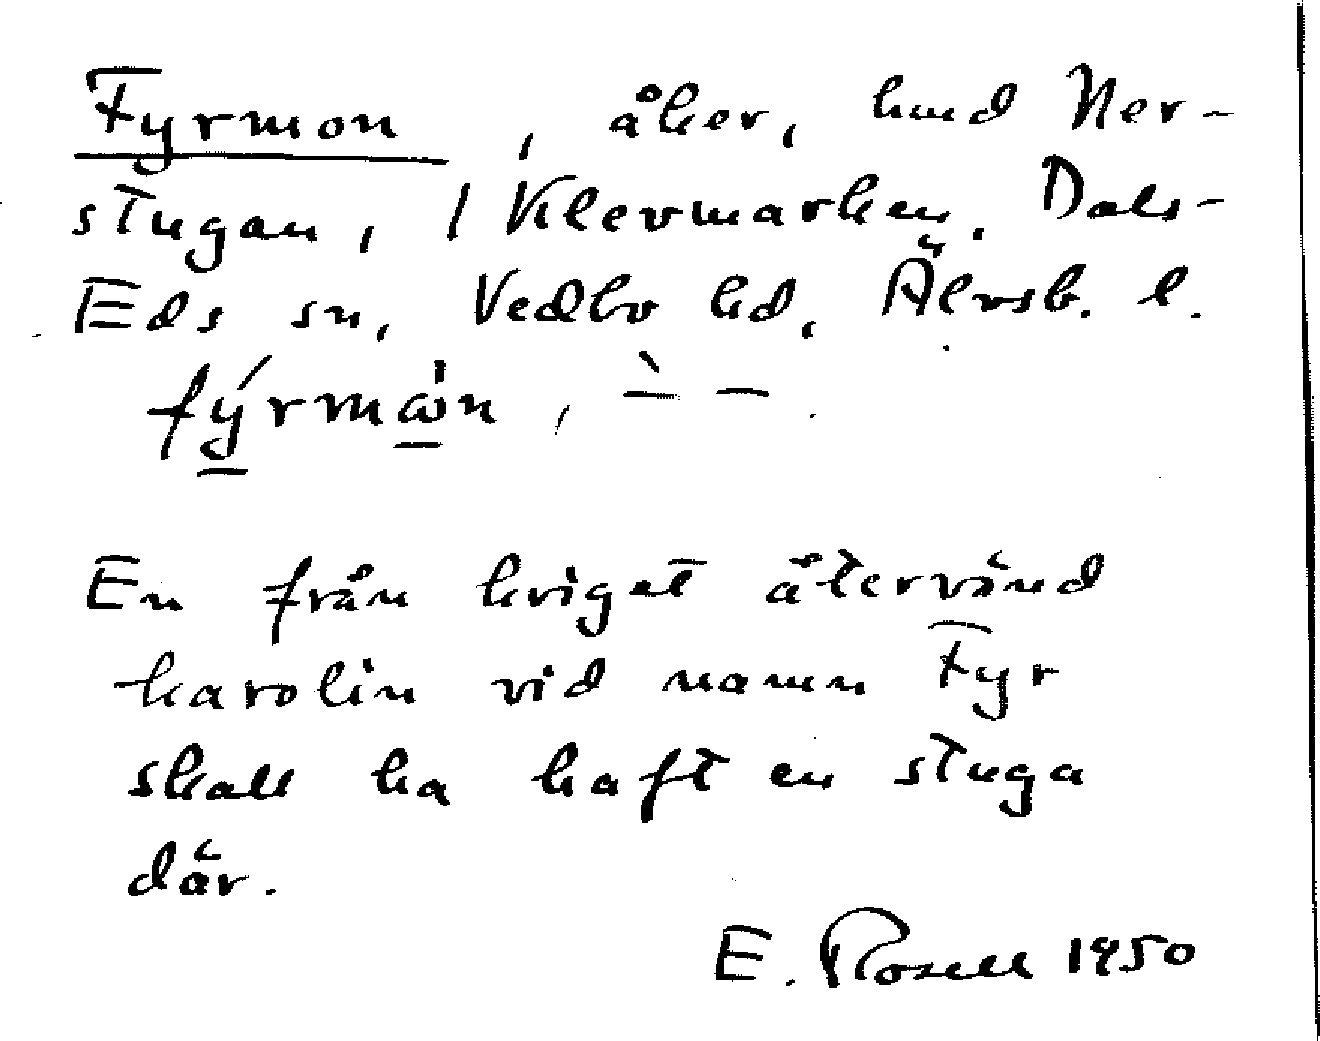 Fyrmon, åker, hmd Ner-
stugan, 1 Klevmarken, Dals-
Eds sn, Vedbo hd, Älvsb. l.
En från kriget återvänd
karolin vid namn Fyr
skall ha haft en stuga
där.
E. Rosell 1950